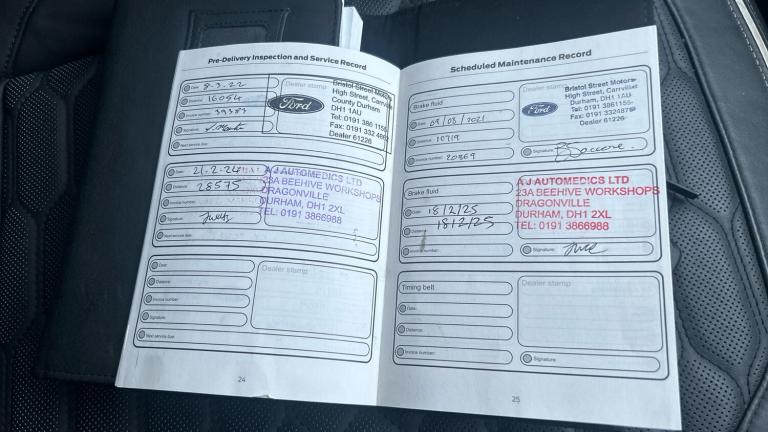 Pre-Delivery Inspection and Service Record
Date: 8-3-22
Distance: 16054
Invoice number: 39383
Signature:
Next service due:
Dealer stamp
Ford
Bristol Street Motors
High Street, Carrville
County Durham
DH1 1AU
Tel: 0191 386 1155
Fax: 0191 332 4867
Dealer 61226
Date: 21-2-24
Distance: 28575
Invoice number:
Signature:
Next service due:
A J AUTOMEDICS LTD
23A BEEHIVE WORKSHOPS
DRAGONVILLE
DURHAM, DH1 2XL
TEL: 0191 3866988
Date:
Distance:
Invoice number:
Signature:
Next service due:
Dealer stamp
24
Scheduled Maintenance Record
Brake fluid
Date: 09/03/2021
Distance: 10719
Invoice number: 20869
Ford
Bristol Street Motors
High Street, Carrville
Durham, DH1 1AU
Tel: 0191 3861155
Fax: 0191 3324878
Dealer 61226
Signature:
Brake fluid
Date: 18/2/25
Distance: 18/2/25
Invoice number:
A J AUTOMEDICS LTD
23A BEEHIVE WORKSHOPS
DRAGONVILLE
DURHAM, DH1 2XL
TEL: 0191 3866988
Signature:
Timing belt
Date:
Distance:
Invoice number:
Dealer stamp
Signature:
25